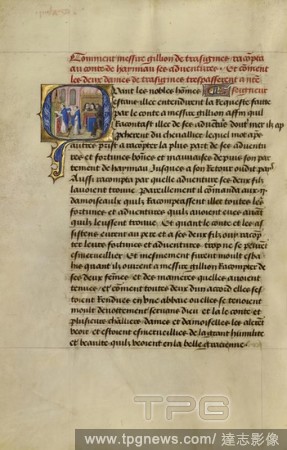 Comment messire gillion de trasignies racompta
au conte de haynnau ses adventures · Et coment
les deux dames de trasignies trespasserent
Quant les nobles homes
estans illec entendirent la requeste faite
par le conte a messire gillion affin quil
racontast illec de ses adventures dont
du chevallier lequel
prist a racopter la plus part de ses adven
tures et fortunes bones et mauvaises depuis son par
tement de haynau Jusques a son retour
Aussi racompta par quelle adventure ses deux filz
lavoient trouve · Pareillement il comanda aux
damoiseaulx quilz racomptassent illec toutes les
fortunes et adventures quilz avoient eues avant
quilz leussent trouve · Et quant le conte et les as
sistens eurent au pere et a ses deux filz ouy racop
ter leurs fortunes et adventures trop ne se
esmerveillier · Et mesmement furent moult esba
his quant ilz ouirent a messire gillion racompter de
ses deux femes et des manieres quelles avoient
tenues et coment toutes deux dun acord elles ses
toient rendues en une abbaie ou elles se tenoient
moult devotement servans dieu et la le conte et
plusieurs chevaliers dames et damoiselles les alerent
veoir et estoient esmerveillies de la grant humilite
et beaulte quilz veoient en la belle gracienne
TPG
www.tpgnews.com/達志影像